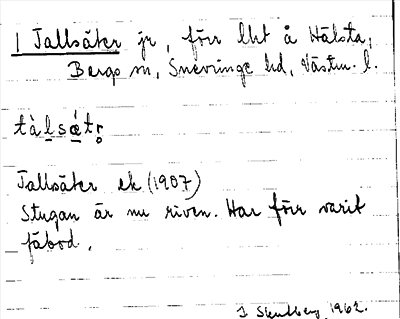 1 Tallsäter jr, förr lht å Hälsta,
Bergs sn, Snevringe hd, Västm. l.
tàlsǽtr̥
Tallsäter ek (1907)
Stugan är nu riven. Har förr varit
fäbod.
1962.